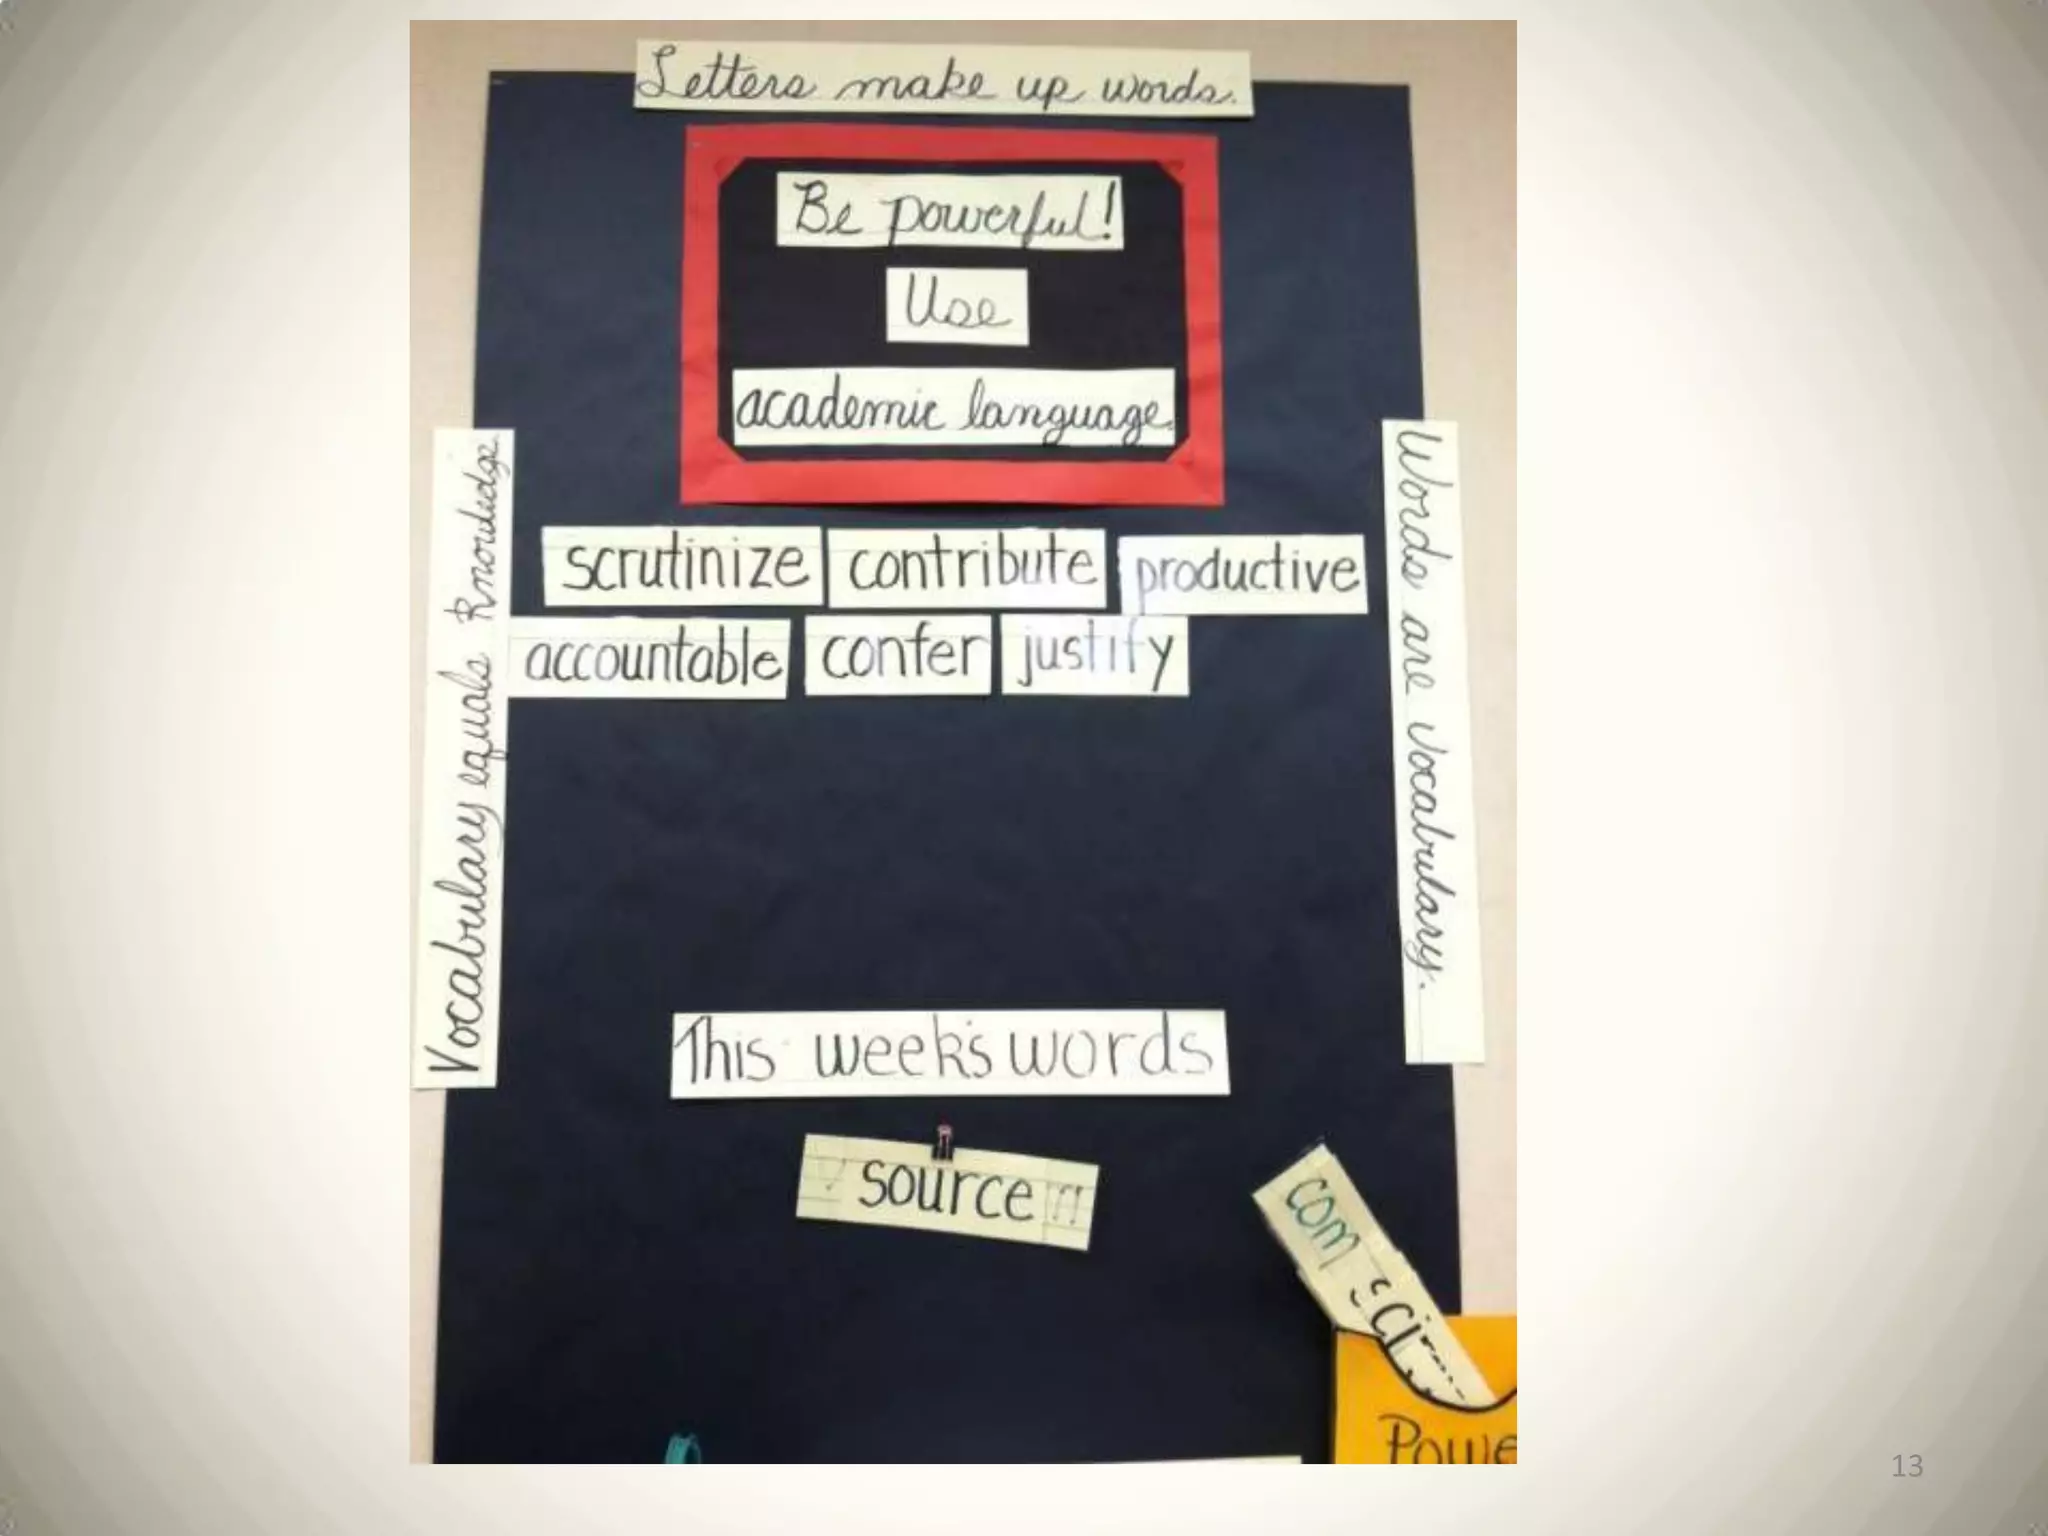 Letters make up words.
Be powerful!
Use
academic language.
Vocabulary equals knowledge
Words are vocabulary.
scrutinize contribute productive
accountable confer justify
This week's words
source
com
Powe
13